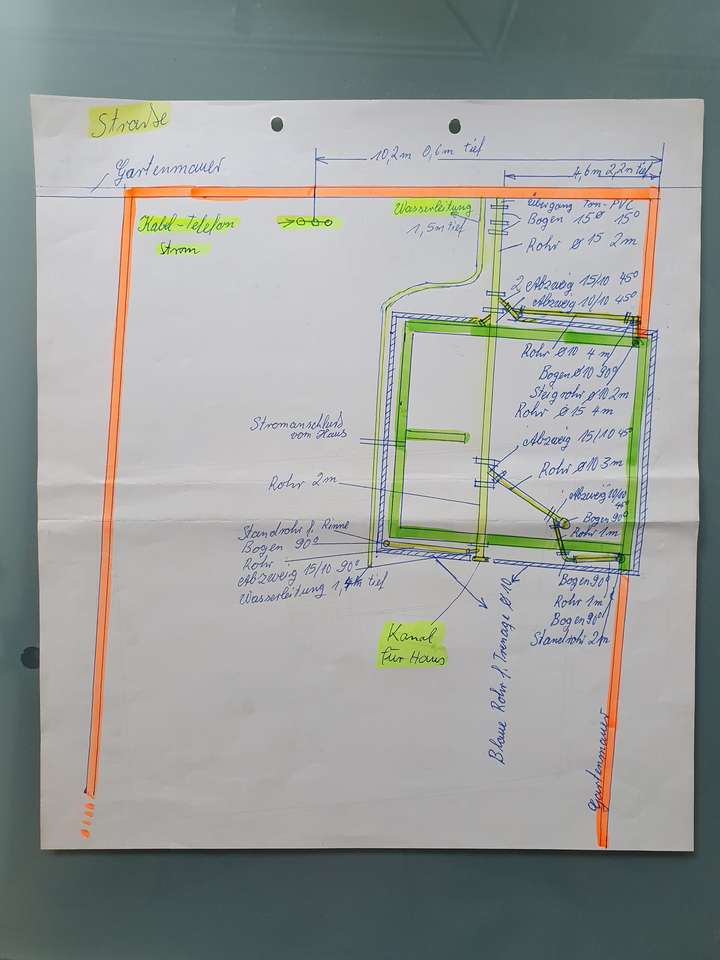 Straße
Gartenmauer
10,2m 0,6m tief
4,6m 2,2m tief
Kabel-Telefon
Strom
Wasserleitung
1,5m tief
Übergang Ton-PVC
Bogen 15⌀ 15°
Rohr ⌀ 15 2m
2 Abzweig 15/10 45°
Abzweig 10/10 45°
Rohr ⌀10 4m
Bogen ⌀10 90°
Steigrohr ⌀10 2m
Rohr ⌀ 15 4m
Stromanschluß
vom Haus
Abzweig 15/10 45°
Rohr ⌀10 3m
Rohr 2m
Abzweig 10/10
45°
Bogen 90°
Rohr 1m
Standrohr f. Rinne
Bogen 90°
Rohr
Abzweig 15/10 90°
Wasserleitung 1,4m tief
Bogen 90°
Rohr 1m
Bogen 90°
Standrohr 2m
Kanal
für Haus
Blaue Rohr f. Trenage ⌀ 10
Gartenmauer